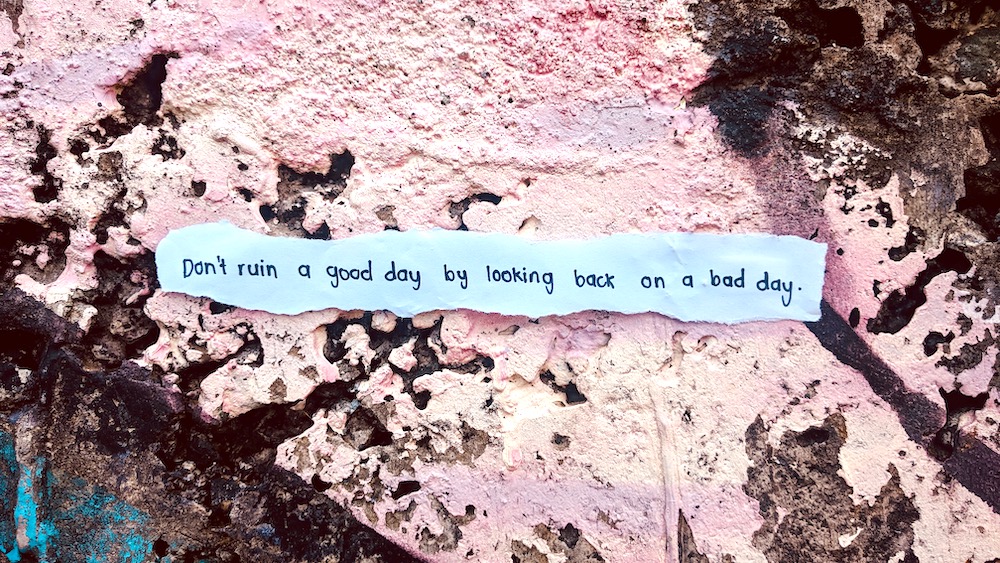 Don't ruin a good day by looking back on a bad day.